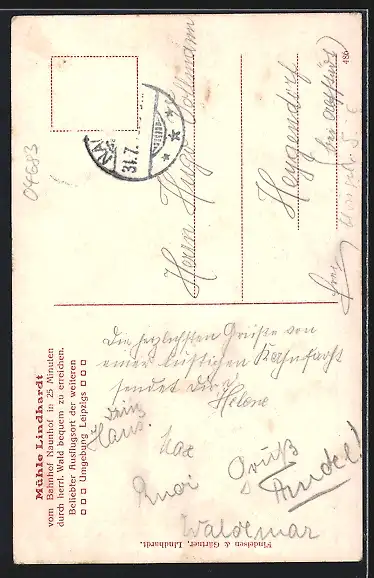 Mühle Lindhardt
vom Bahnhof Naunhof in 25 Minuten
durch herrl. Wald bequem zu erreichen.
Beliebter Ausflugsort der weiteren
Umgebung Leipzigs
Die herzlichsten Grüße von
einer lustigen Kahnfahrt
sendet dir
Helene
Dein
Hans.
Max
Gruß
Waldemar
Findeisen & Gärtner, Lindhardt.
31.7.
Herrn Hugo Hoffmann
Heygendorf
(bei Allstedt)
486
04683